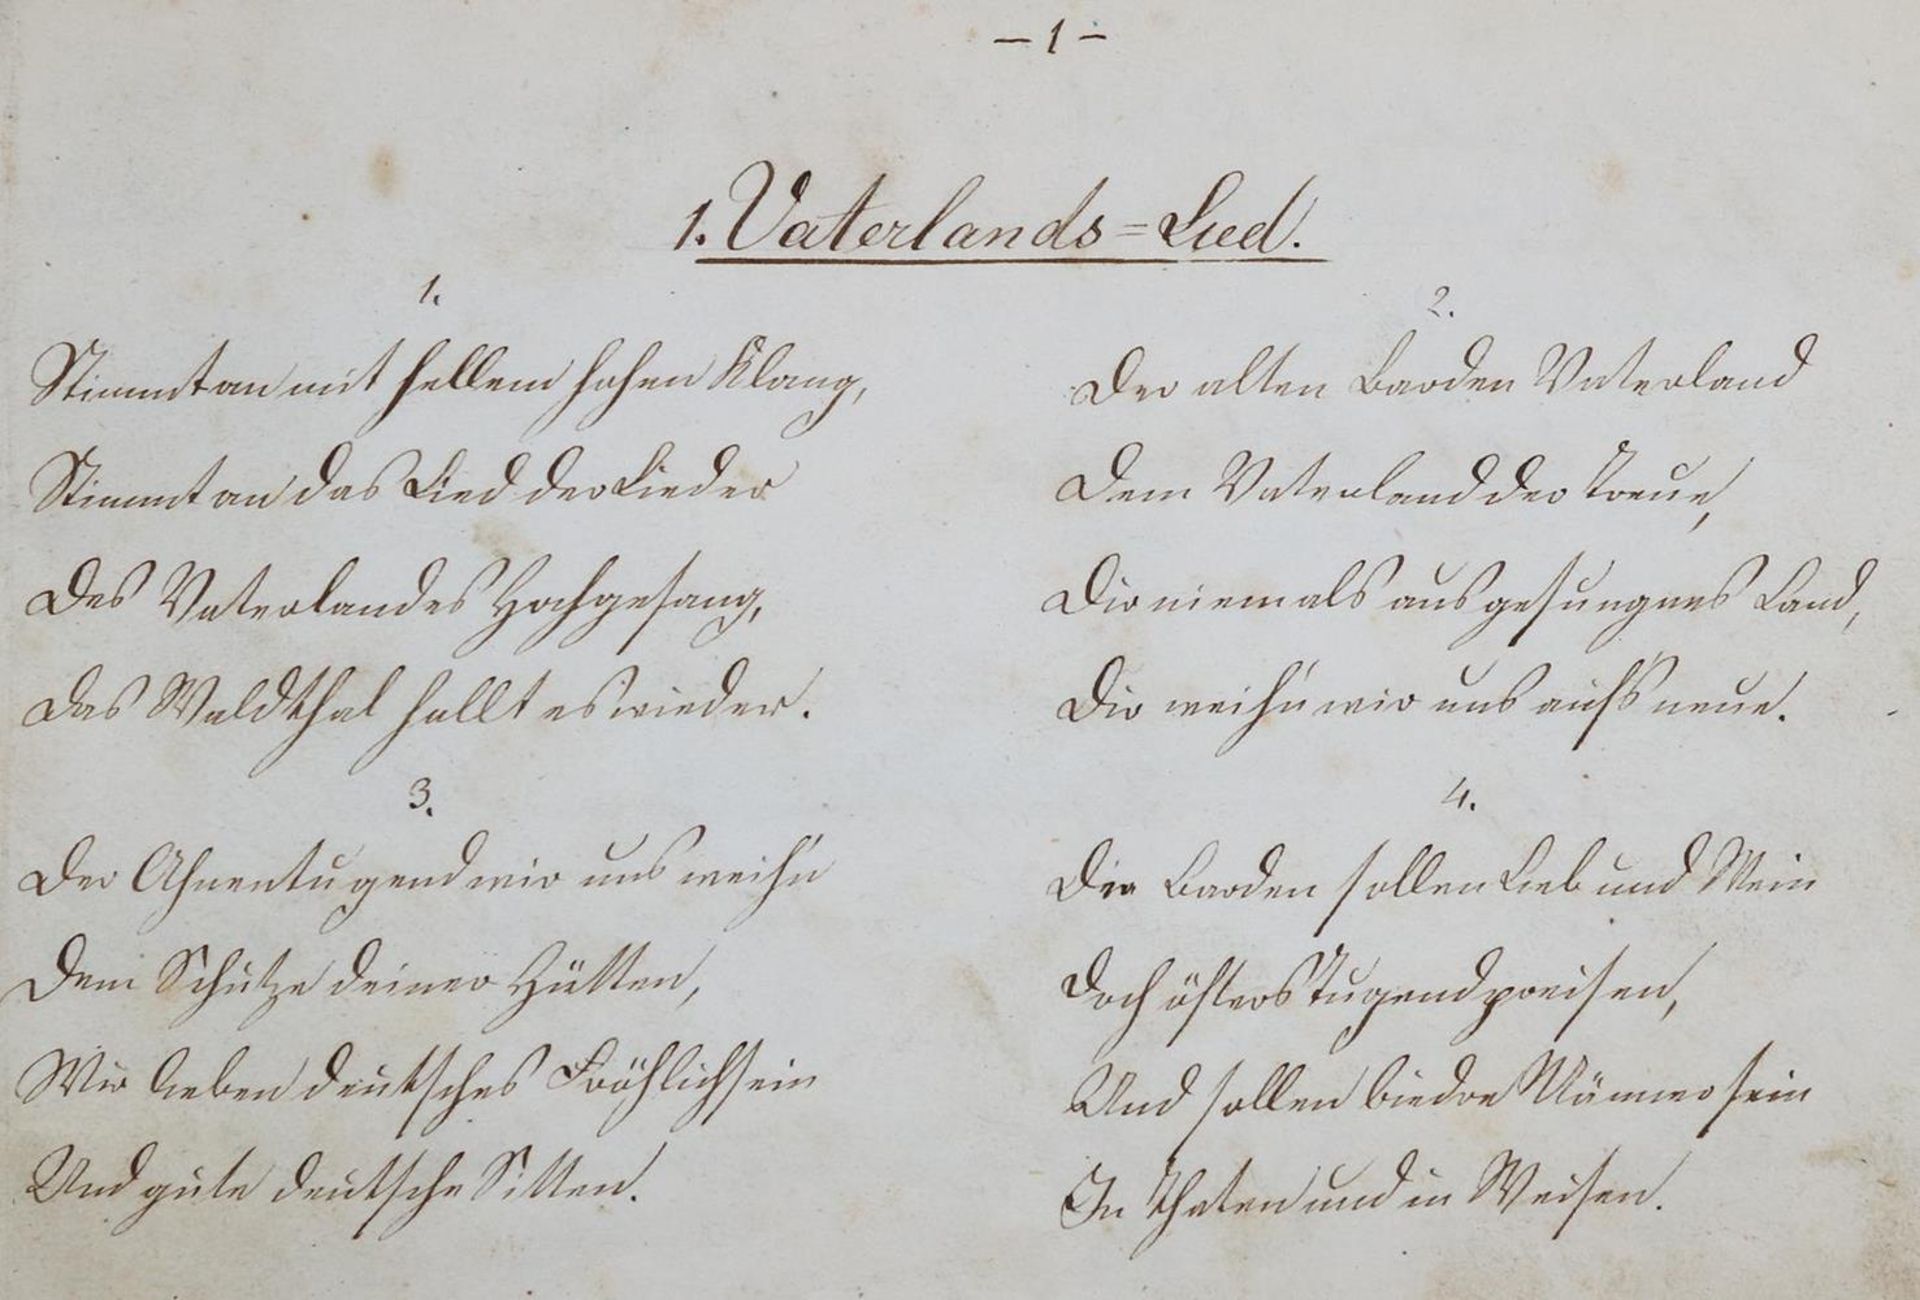 – 1 –
1. Vaterlands=Lied.
1.
Stimmt an mit hellem hohen Klang,
Stimmt an das Lied der Lieder
Des Vaterlandes Hochgesang,
Das Waldthal hallt es wieder.
2.
Der alten Barden Vaterland
Dem Vaterland der Treue,
Dir niemals ausgesungnes Land,
Dir weih'n wir uns aufs neue.
3.
Der Ahnentugend wir uns weih'n
Dem Schutze deiner Hütten,
Wir lieben deutsches Fröhlichsein
Und gute deutsche Sitten.
4.
Die Barden sollen Lieb und Wein
Doch öfters Tugend preisen,
Und sollen biedre Männer sein
In Thaten und in Weisen.